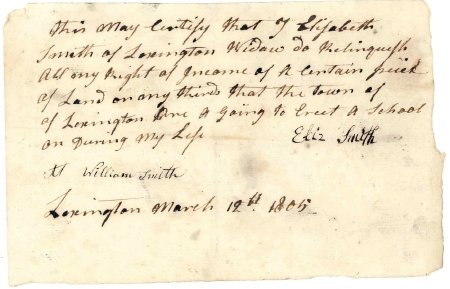 This May Certify that I Elisabeth
Smith of Lexington Widaw do Relinquesh
All my Right of Income of A Certain peick
of Land on my thirds That the town of
of Lexington are A going to Erect A School
on During My Life
Eliz Smith
At William Smith
Lexington March 12th 1805